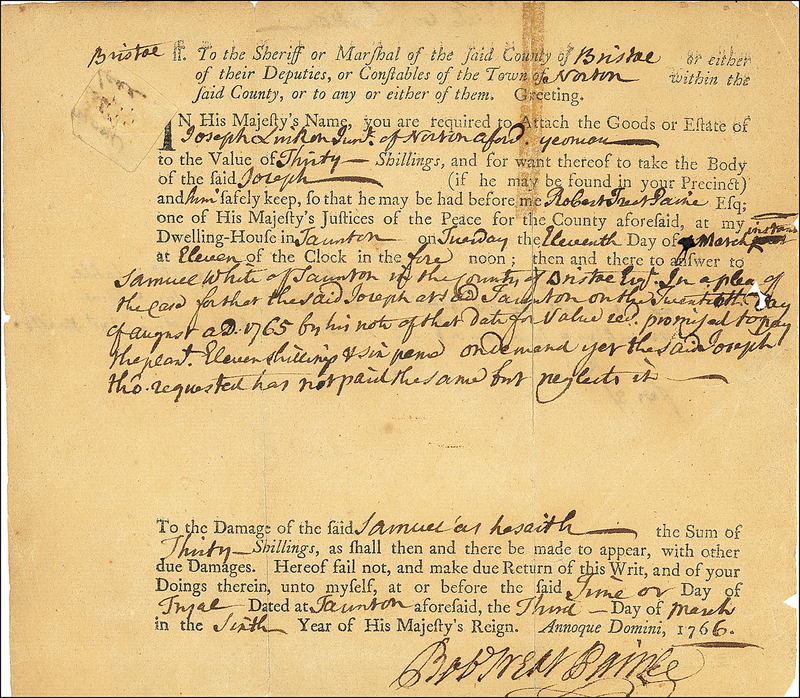 Bristol ſſ. To the Sheriff or Marſhal of the ſaid County of Bristol or either
of their Deputies, or Conſtables of the Town of Norton within the
ſaid County, or to any or either of them. Greeting.
IN His Majeſty's Name, you are required to Attach the Goods or Eſtate of
Joseph Linkon Junr. of Norton aforsd. yeoman
to the Value of Thirty Shillings, and for want thereof to take the Body
of the ſaid Joseph (if he may be found in your Precinct)
and him ſafely keep, ſo that he may be had before me Robert Treat Paine Eſq;
one of His Majeſty's Juſtices of the Peace for the County aforeſaid, at my
Dwelling-Houſe in Taunton on Tuesday the Eleventh Day of March instant
at Eleven of the Clock in the fore noon; then and there to anſwer to
Samuel White of Taunton in the County of Bristol Esqr. In a plea of
the case for that the said Joseph at sd. Taunton on the Twentieth Day
of august a.D. 1765 by his note of that date for value recd. promised to pay
the plant. Eleven shillings & six pence on demand yet the said Joseph
tho. requested has not paid the same but neglects it
To the Damage of the ſaid Samuel as he saith the Sum of
Thirty Shillings, as ſhall then and there be made to appear, with other
due Damages. Hereof fail not, and make due Return of this Writ, and of your
Doings therein, unto myſelf, at or before the ſaid Time or Day of
Tryal Dated at Taunton aforeſaid, the Third Day of March
in the Sixth Year of His Majeſty's Reign. Annoque Domini, 1766.
Rob Treat Paine